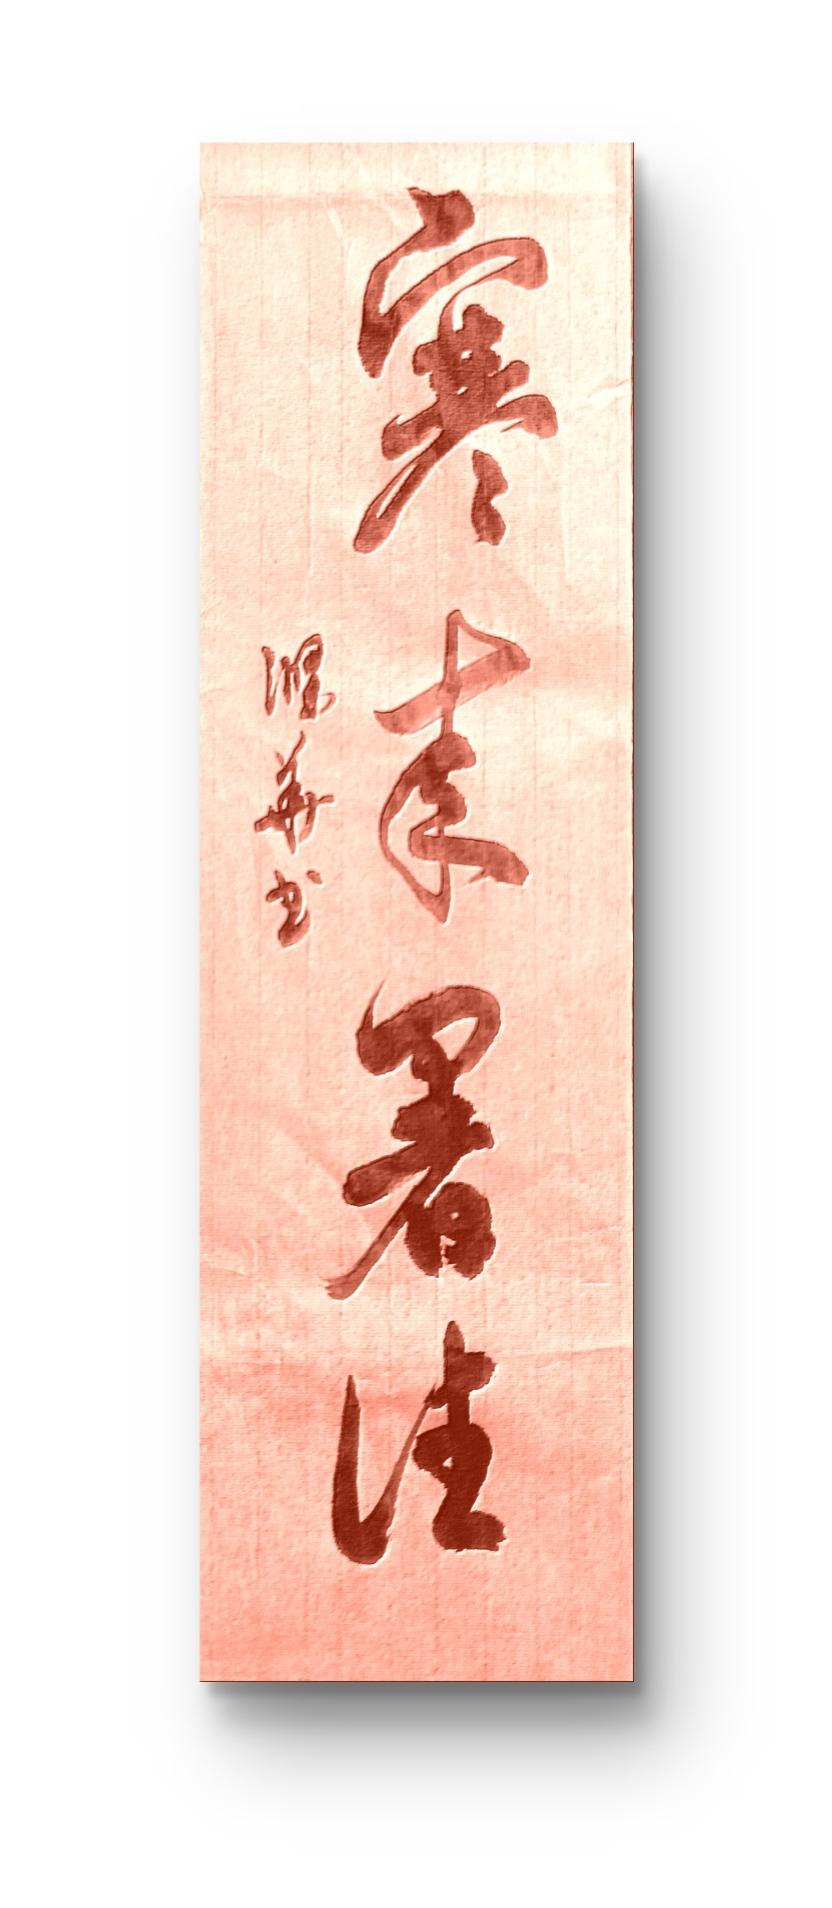 寒来暑往
深華书